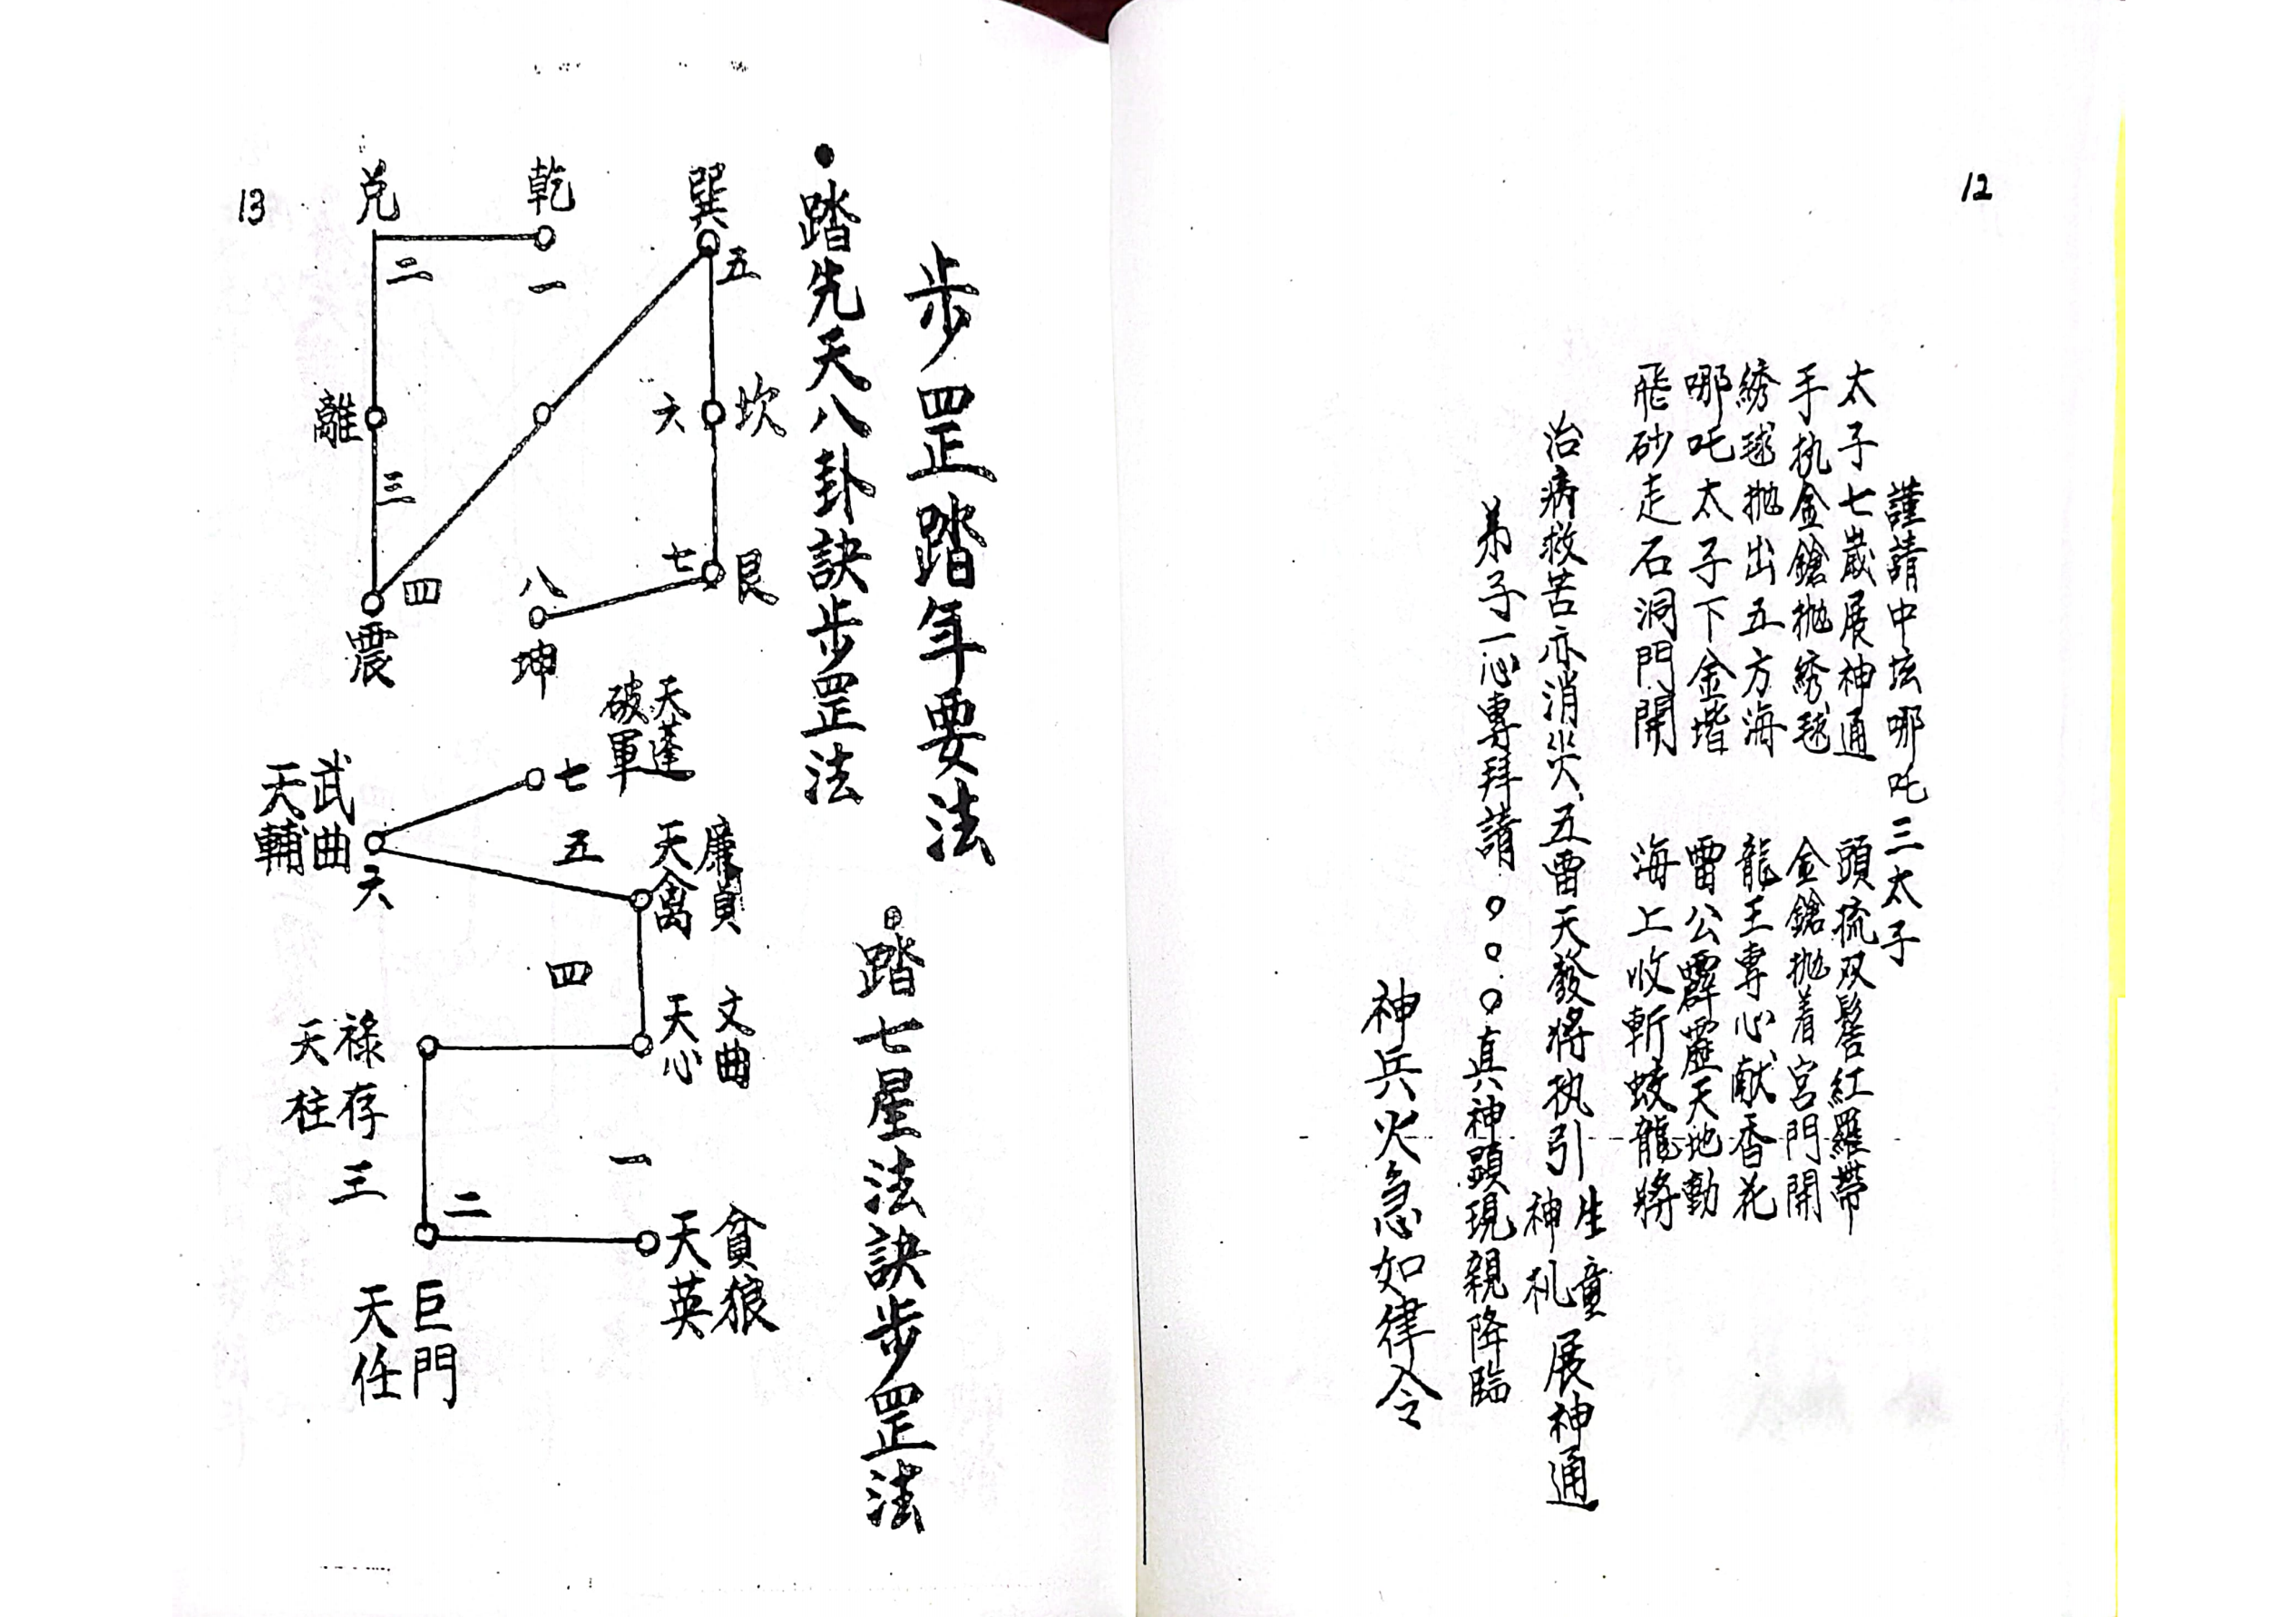 12
謹請中坛哪吒三太子
太子七歲展神通 頭梳双髻紅羅帶
手执金鎗抛綉毬 金鎗抛着宮門開
綉毬抛出五方海 龍王專心献香花
哪吒太子下金堦 雷公霹靂天地動
飛砂走石洞門開 海上收斬蛟龍將
治病救苦亦消災 五雷天發將执引生童神乩展神通
弟子一心專拜請 。。。真神顕現親降臨
神兵火急如律令
13
步罡踏年要法
●踏先天八卦訣步罡法
乾 一
兌 二
離 三
震 四
巽 五
坎 六
艮 七
坤 八
踏七星法訣步罡法
貪狼 天英 一
巨門 天任 二
祿存 天柱 三
文曲 天心 四
廉貞 天禽 五
武曲 天輔 六
天蓬 破軍 七